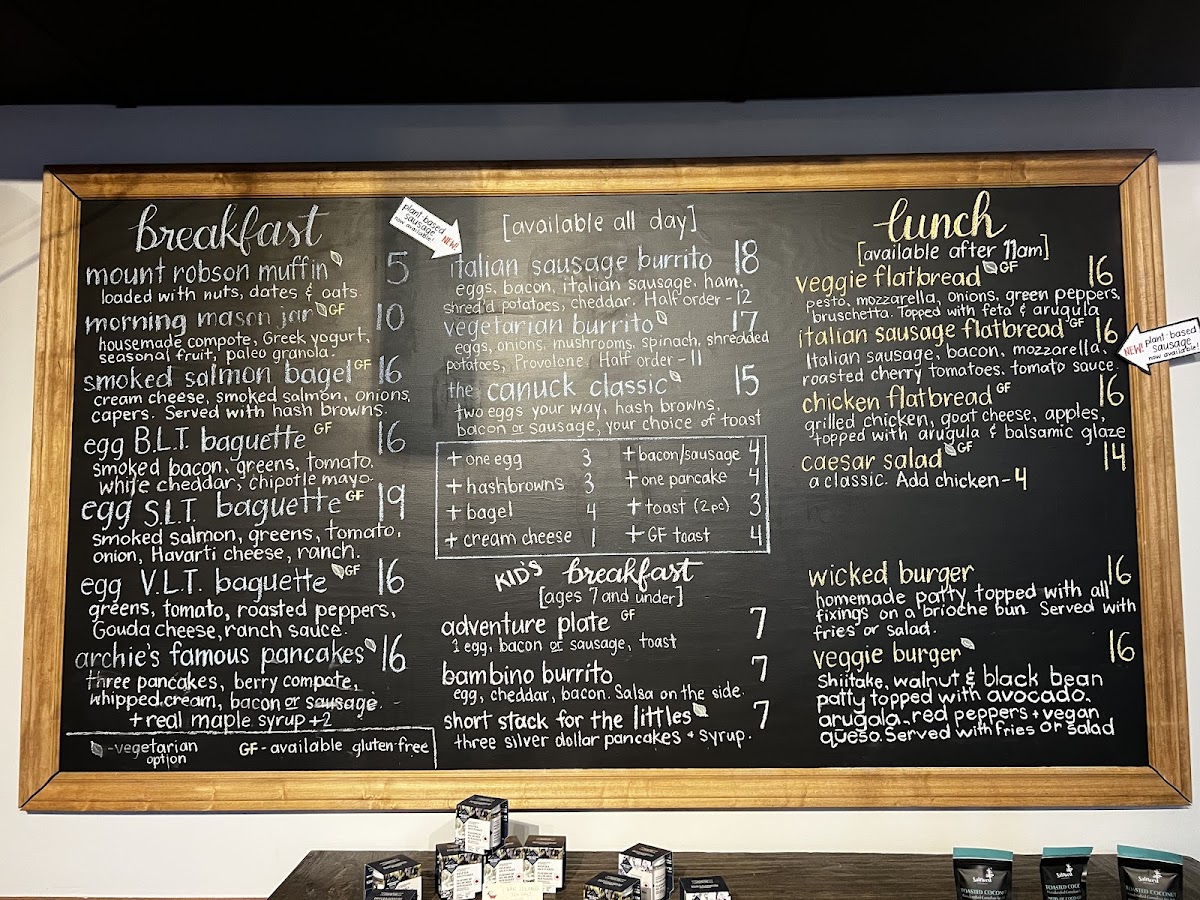 breakfast
mount robson muffin 5
loaded with nuts, dates & oats
morning mason jar GF 10
housemade compote, Greek yogurt,
seasonal fruit, paleo granola.
smoked salmon bagel GF 16
cream cheese, smoked salmon, onions,
capers. Served with hash browns.
egg B.L.T. baguette GF 16
smoked bacon, greens, tomato,
white cheddar, chipotle mayo.
egg S.L.T. baguette GF 19
smoked salmon, greens, tomato,
onion, Havarti cheese, ranch.
egg V.L.T. baguette GF 16
greens, tomato, roasted peppers,
Gouda cheese, ranch sauce.
archie's famous pancakes 16
three pancakes, berry compote,
whipped cream, bacon or sausage.
+ real maple syrup +2
-vegetarian
option
GF - available gluten-free
plant-based
sausage
now available!
NEW!
[available all day]
italian sausage burrito 18
eggs, bacon, italian sausage, ham,
shred'd potatoes, cheddar. Half order - 12
vegetarian burrito 17
eggs, onions, mushrooms, spinach, shredded
potatoes, Provolone. Half order - 11
the canuck classic 15
two eggs your way, hash browns,
bacon or sausage, your choice of toast
+ one egg 3
+ hashbrowns 3
+ bagel 4
+ cream cheese 1
+ bacon/sausage 4
+ one pancake 4
+ toast (2pc) 3
+ GF toast 4
KID'S breakfast
[ages 7 and under]
adventure plate GF 7
1 egg, bacon or sausage, toast
bambino burrito 7
egg, cheddar, bacon. Salsa on the side.
short stack for the littles 7
three silver dollar pancakes + syrup.
lunch
[available after 11am]
veggie flatbread GF 16
pesto, mozzarella, onions, green peppers,
bruschetta. Topped with feta & arugula
italian sausage flatbread GF 16
Italian sausage, bacon, mozzarella,
roasted cherry tomatoes, tomato sauce.
NEW! plant-based
sausage
now available!
chicken flatbread GF 16
grilled chicken, goat cheese, apples,
topped with arugula & balsamic glaze
caesar salad GF 14
a classic. Add chicken - 4
wicked burger 16
homemade patty topped with all
fixings on a brioche bun. Served with
fries or salad.
veggie burger 16
Shiitake, walnut & black bean
patty topped with avocado,
arugala, red peppers + vegan
queso. Served with fries or salad
TOASTED COCONUT
TOASTED COCO
TOASTED COCONUT